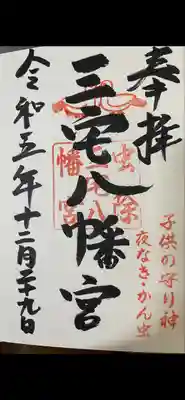 奉拝
子供の守り神
夜なき・かん虫
虫除
三宅八
幡宮
三宅八幡宮
令和五年十二月二十九日